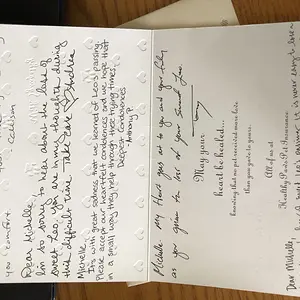 you comfort.
Dear Michelle,
I'm so sorry to hear about the loss of
sweet Leo, you are in my thoughts during
this difficult time. Take care ♡ Andrea
Michelle,
It's with great sadness that we learned of Leo's passing.
Please accept our heartfelt condolences and we hope that
in a small way they help through these trying times.
Deepest Condolences
-Anthony P.
Michelle, My Heart goes out to you and your family
as you grieve the loss of your Sweet Leo.
May your
heart be healed...
knowing that no pet received more love
than you gave to yours.
All of us at
Healthy Paws Pet Insurance
Dear Michelle,
is never easy to lose